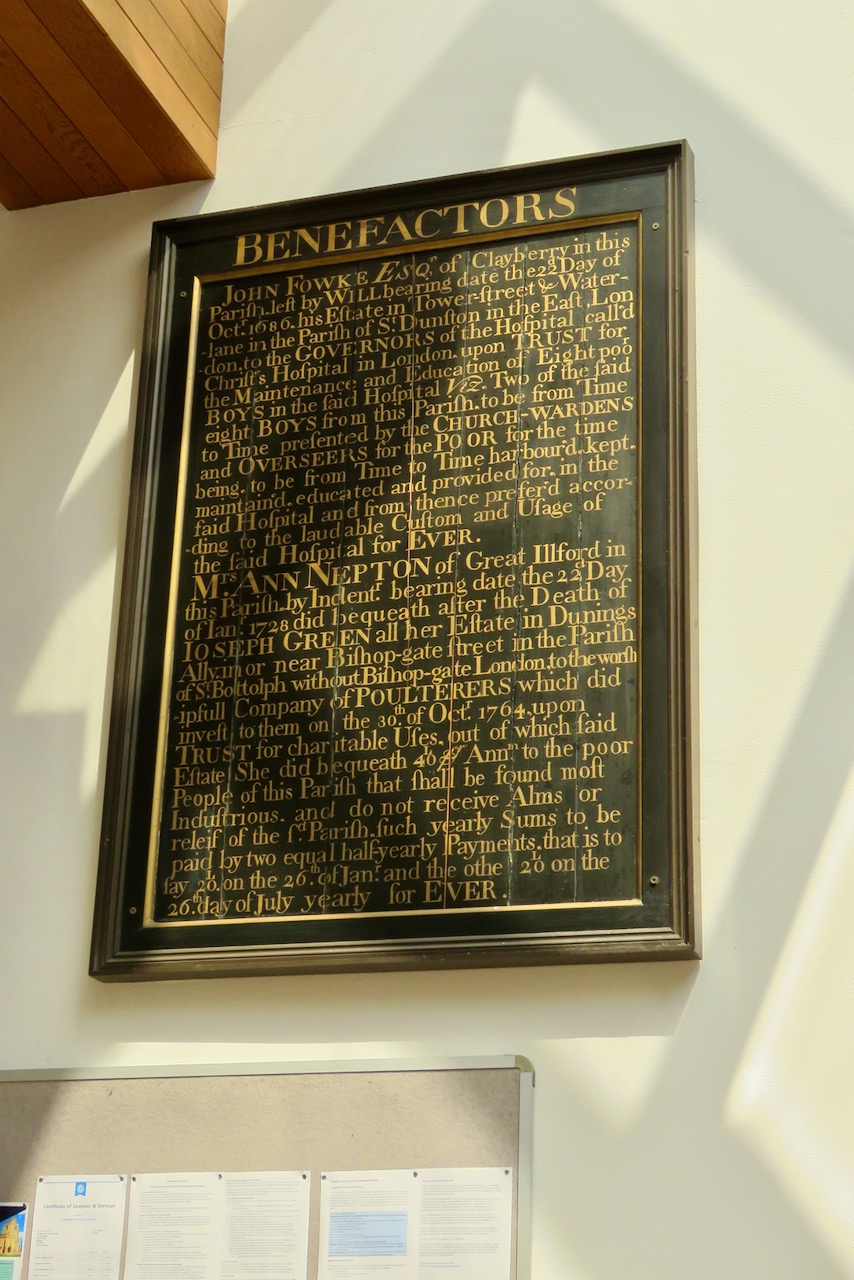 BENEFACTORS
JOHN FOWKE ESQr. of Clayberry in this
Pariſh left by WILL bearing date the 22d Day of
Octr. 1686. his Eſtate in Tower-ſtreet & Water-
-lane in the Pariſh of St. Dunſton in the Eaſt, Lon
don, to the GOVERNORS of the Hoſpital call'd
Chriſt's Hoſpital in London, upon TRUST for
the Maintenance and Education of Eight poo
BOYS in the ſaid Hoſpital Viz. Two of the ſaid
eight BOYS from this Pariſh, to be from Time
to Time preſented by the CHURCH-WARDENS
and OVERSEERS for the POOR for the time
being, to be from Time to Time harbour'd, kept,
maintain'd, educated and provided for, in the
ſaid Hoſpital and from thence prefer'd accor-
-ding to the laudable Cuſtom and Uſage of
the ſaid Hoſpital for EVER.
Mrs. ANN NEPTON of Great Illford in
this Pariſh, by Indentr. bearing date the 22d Day
of Jany. 1728 did bequeath after the Death of
IOSEPH GREEN all her Eſtate in Dunings
Ally, in or near Biſhop-gate ſtreet in the Pariſh
of St. Bottolph without Biſhop-gate London, to the worſh
-ipfull Company of POULTERERS which did
inveſt to them on the 30th. of Octr. 1764, upon
TRUST for charitable Uſes, out of which ſaid
Eſtate She did bequeath 40L ⅌ Annm. to the poor
People of this Pariſh that ſhall be found moſt
Induſtrious, and do not receive Alms or
releif of the ſd. Pariſh, ſuch yearly Sums to be
paid by two equal half-yearly Payments, that is to
ſay 20L. on the 26th. of Jany. and the othe 20L on the
26th. day of July yearly for EVER.
Certificate of Licences & Services